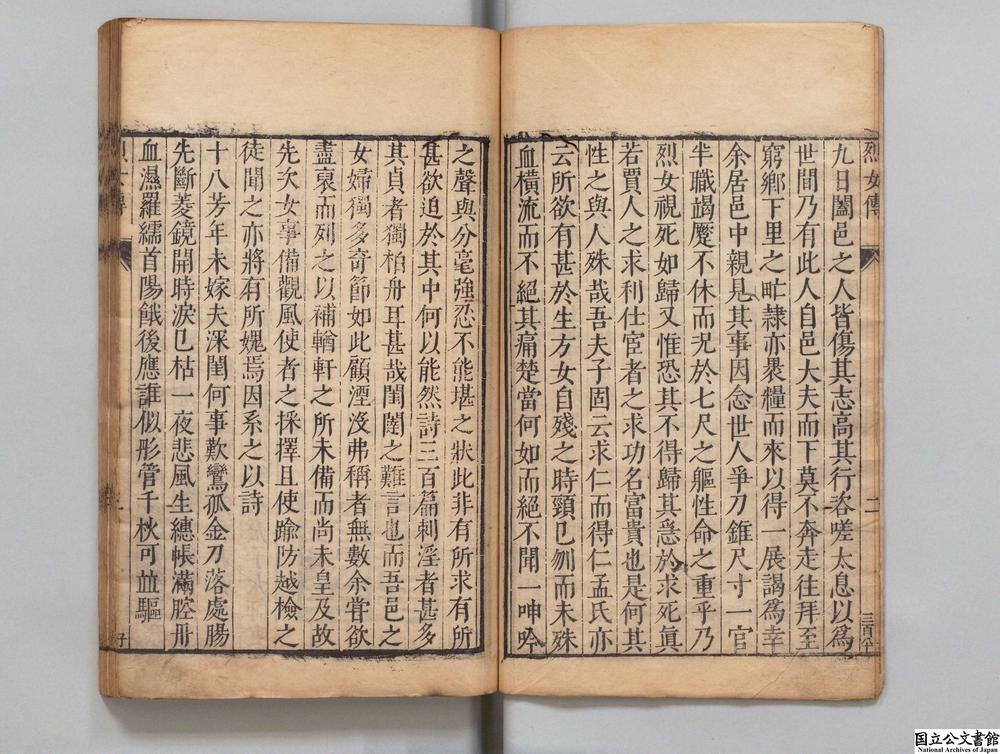 烈女傳
二
九日闔邑之人皆傷其志高其行咨嗟太息以為
世間乃有此人自邑大夫而下莫不奔走往拜至
窮鄉下里之甿隸亦褁糧而來以得一展謁為幸
余居邑中親見其事因念世人爭刀錐尺寸一官
半職竭蹷不休而況於七尺之軀性命之重乎乃
烈女視死如歸又惟恐其不得歸其急於求死眞
若賈人之求利仕宦者之求功名富貴也是何其
性之與人殊哉吾夫子固云求仁而得仁孟氏亦
云所欲有甚於生方女自殘之時頸已刎而未殊
血橫流而不絕其痛楚當何如而絕不聞一呻吟
之聲與分毫強忍不能堪之狀此非有所求有所
甚欲迫於其中何以能然詩三百篇刺淫者甚多
其貞者獨柏舟耳甚哉閨閫之難言也而吾邑之
女婦獨多奇節如此顧湮沒弗稱者無數余嘗欲
盡裒而列之以補輶軒之所未備而尚未皇及故
先次女事備觀風使者之採擇且使踰防越檢之
徒聞之亦將有所媿焉因系之以詩
十八芳年未嫁夫深閨何事歎鸞孤金刀落處腸
先斷菱鏡開時淚已枯一夜悲風生繐帳滿腔冊
血濕羅繻首陽餓後應誰似彤管千秋可並驅
国立公文書館
National Archives of Japan